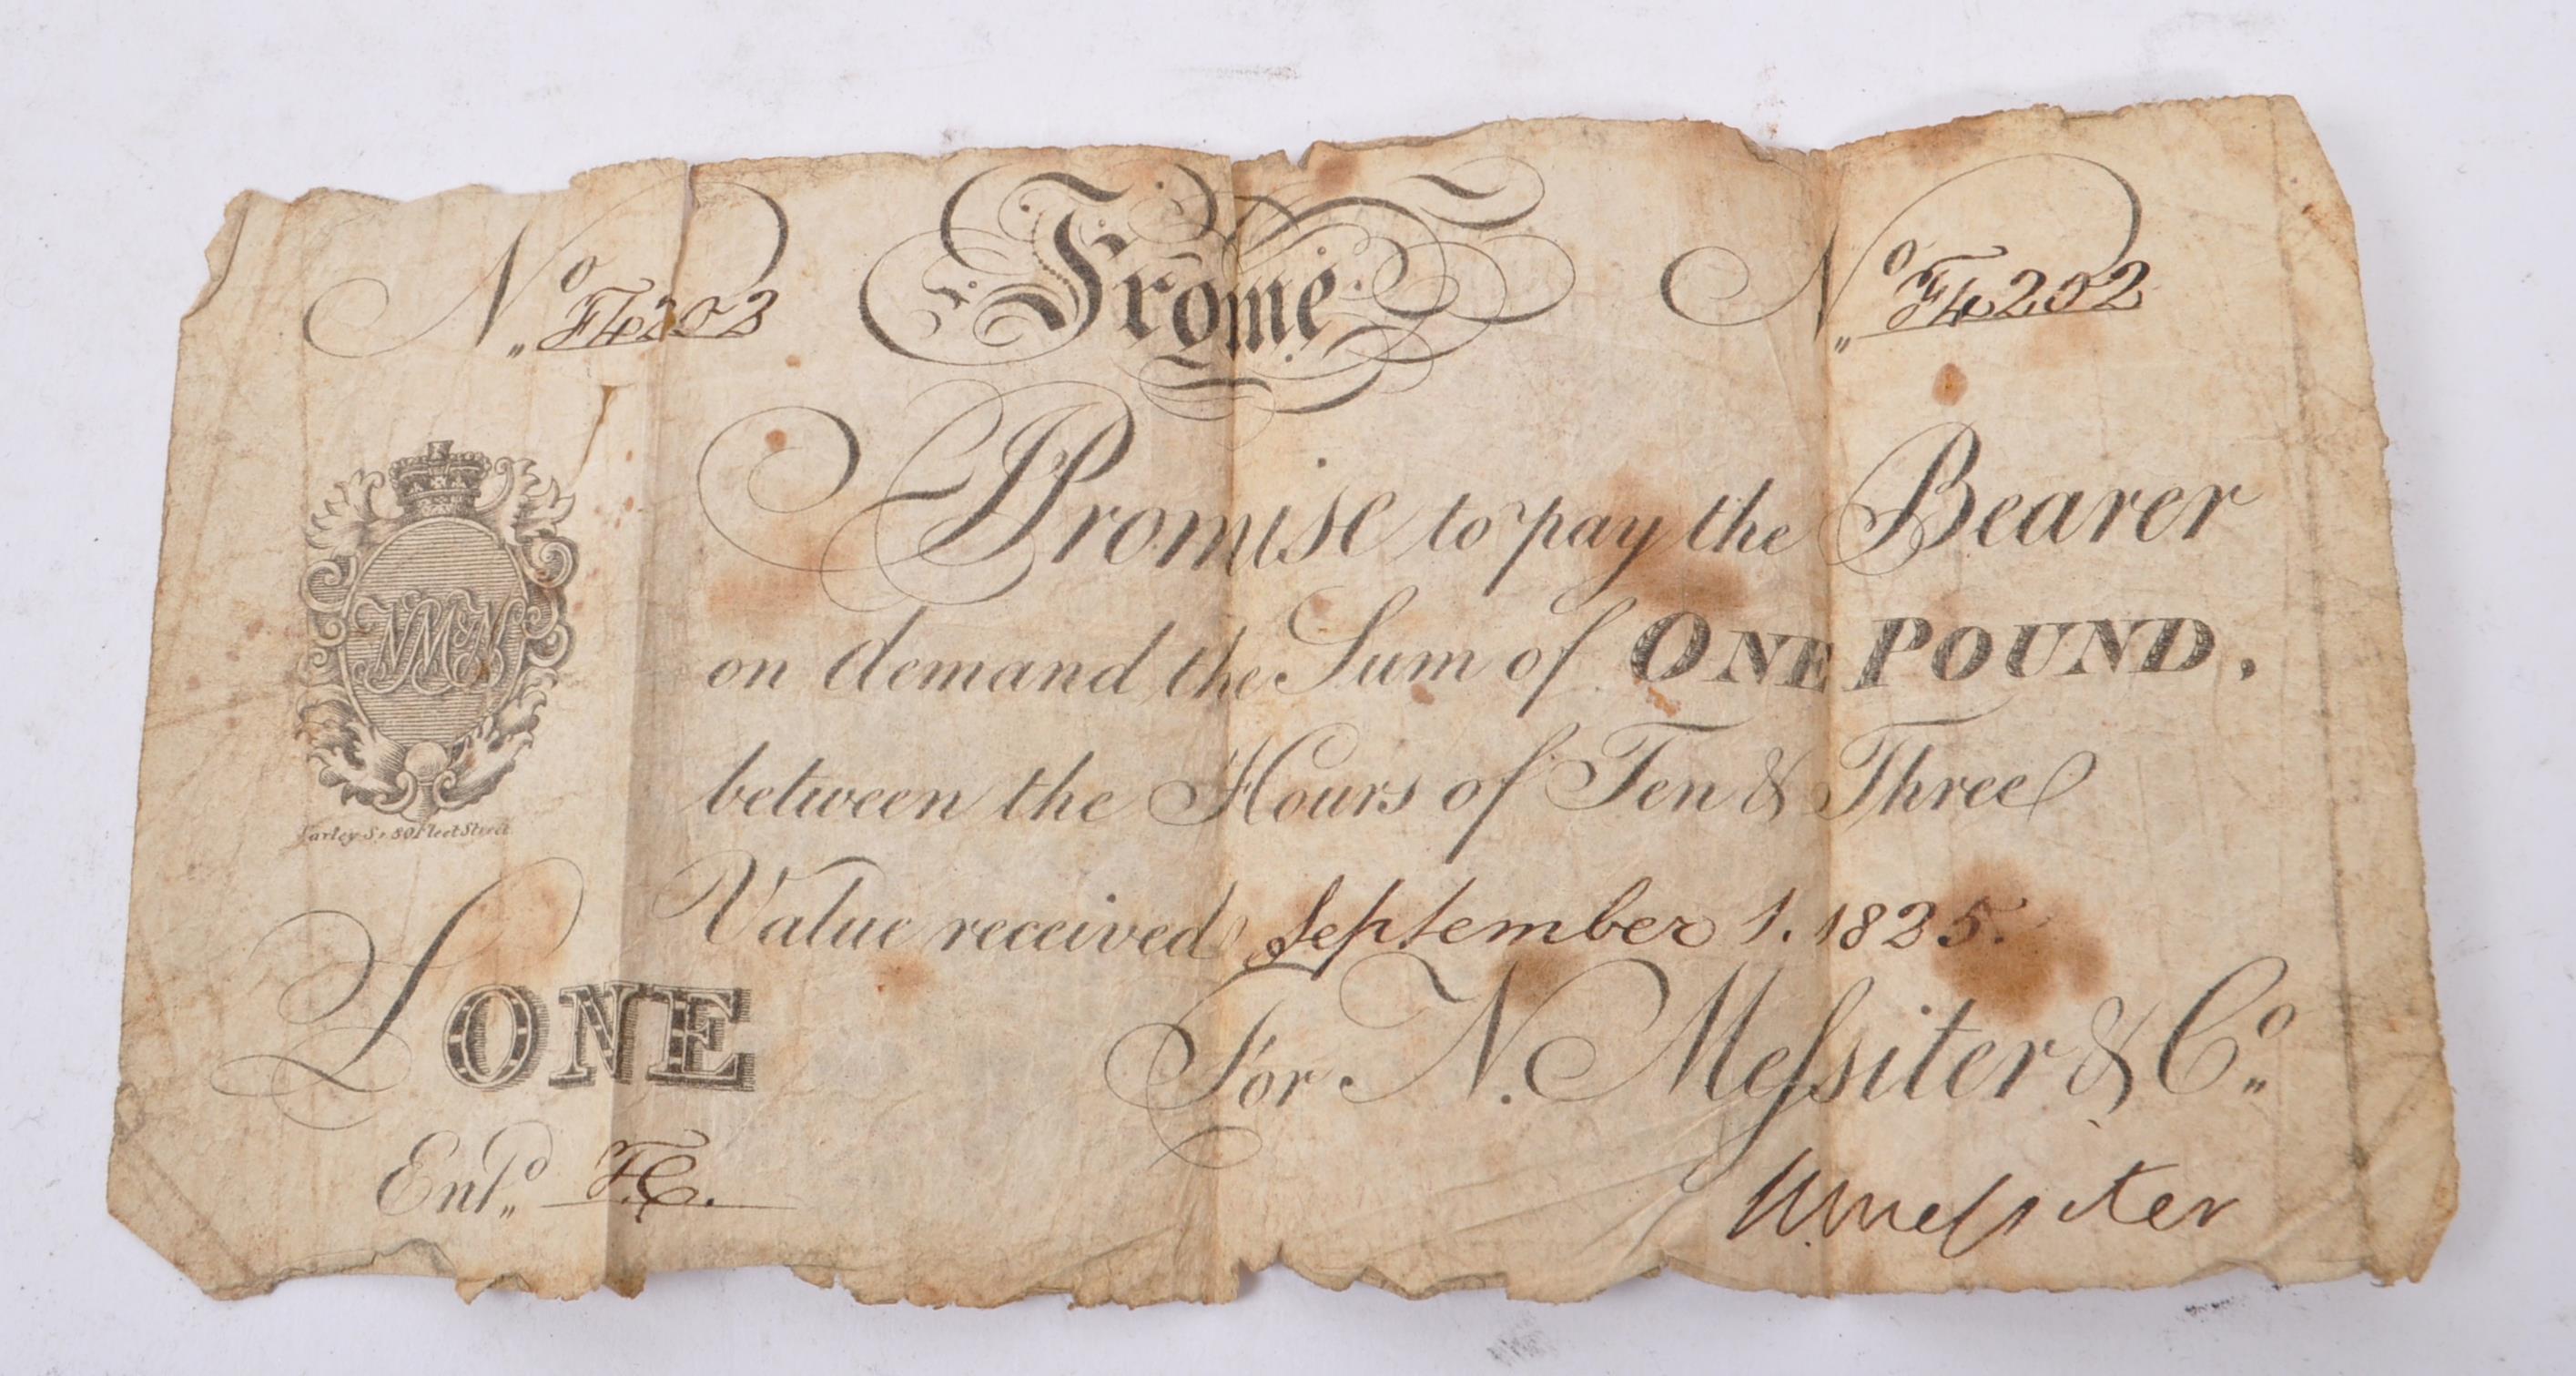 No F4202 Frome No F4202
I Promise to pay the Bearer
on demand the Sum of ONE POUND.
between the Hours of Ten & Three
Value received September 1. 1825.
£ONE
For N. Meſsiter & Co
Entd F.C.
N. Meſsiter
80 Fleet Street